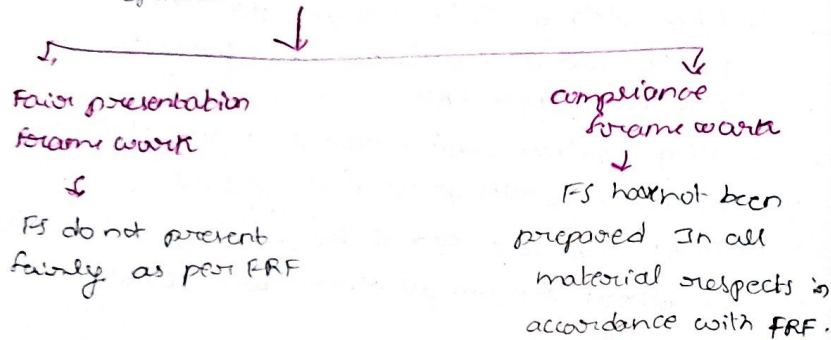 Fair presentation
frame work
FS do not present
fairly as per FRF
compliance
frame work
FS have not been
prepared In all
material respects in
accordance with FRF.